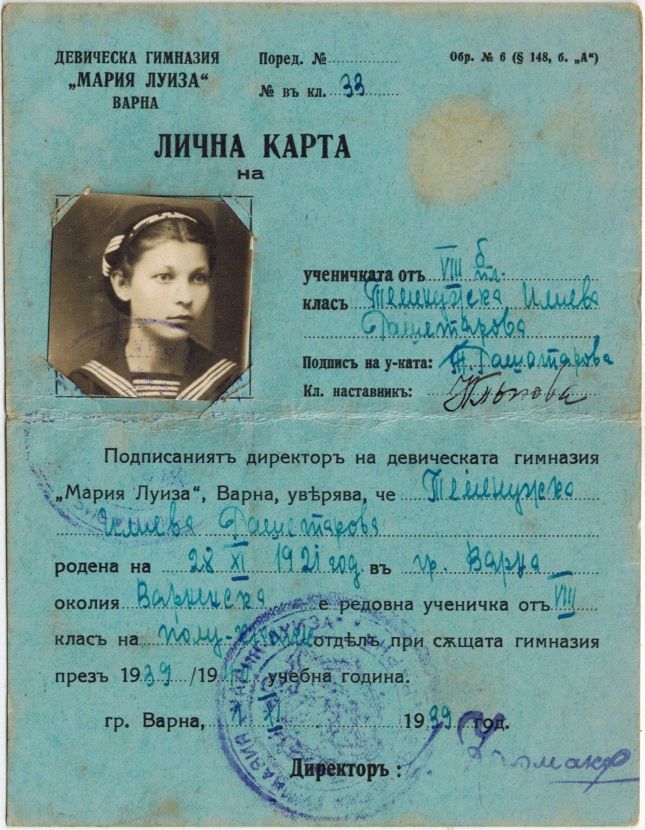 ДЕВИЧЕСКА ГИМНАЗИЯ
„МАРИЯ ЛУИЗА“
ВАРНА
Поред. №
№ въ кл. 33
Обр. № 6 (§ 148, б. „А“)
ЛИЧНА КАРТА
на
ученичката отъ VIII б пл.
класъ Теменужка Илиева
Подпись на у-ката: Т.
Кл. наставникъ:
Подписаниятъ директоръ на девическата гимназия
„Мария Луиза“, Варна, увѣрява, че Теменужка
Илиева
родена на 28 XI 1921 год. въ гр. Варна
околия Варненска е редовна ученичка отъ VIII
класъ на отдѣлъ при сѫщата гимназия
презъ 1939 /19 учебна година.
гр. Варна, 1 XI 1939 год.
Директоръ: